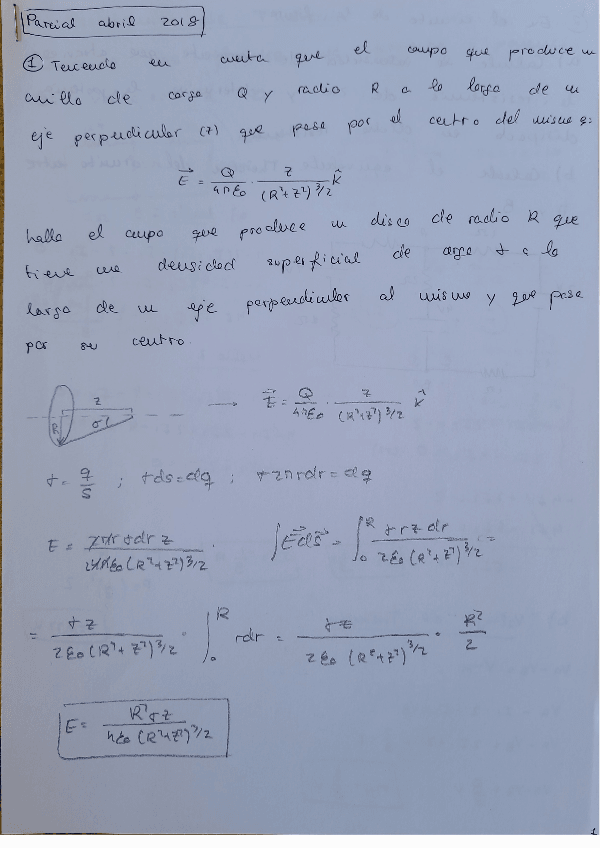 Parcial abril 2018
① Teniendo en cuenta que el campo que produce un
anillo de carga Q y radio R a lo largo de un
eje perpendicular (z) que pasa por el centro del mismo es:
E⃗ = Q/4πε₀ · z/(R²+z²)^3/2 k̂
halla el campo que produce un disco de radio R que
tiene una densidad superficial de carga σ a lo
largo de un eje perpendicular al mismo y que pasa
por su centro.
z
R
→ E⃗ = Q/4πε₀ · z/(R²+z²)^3/2 k̂
σ = q/S ; σds = dq ; σ2πrdr = dq
E = 2πrσdr z/24πε₀(R²+z²)^3/2 · ∫E⃗ds⃗ = ∫₀ᴿ σrz dr/2ε₀(R²+z²)^3/2 =
= σz/2ε₀(R²+z²)^3/2 · ∫₀ᴿ rdr = σz/2ε₀(R²+z²)^3/2 · R²/2
E = R²σz/4ε₀(R²+z²)^3/2
1